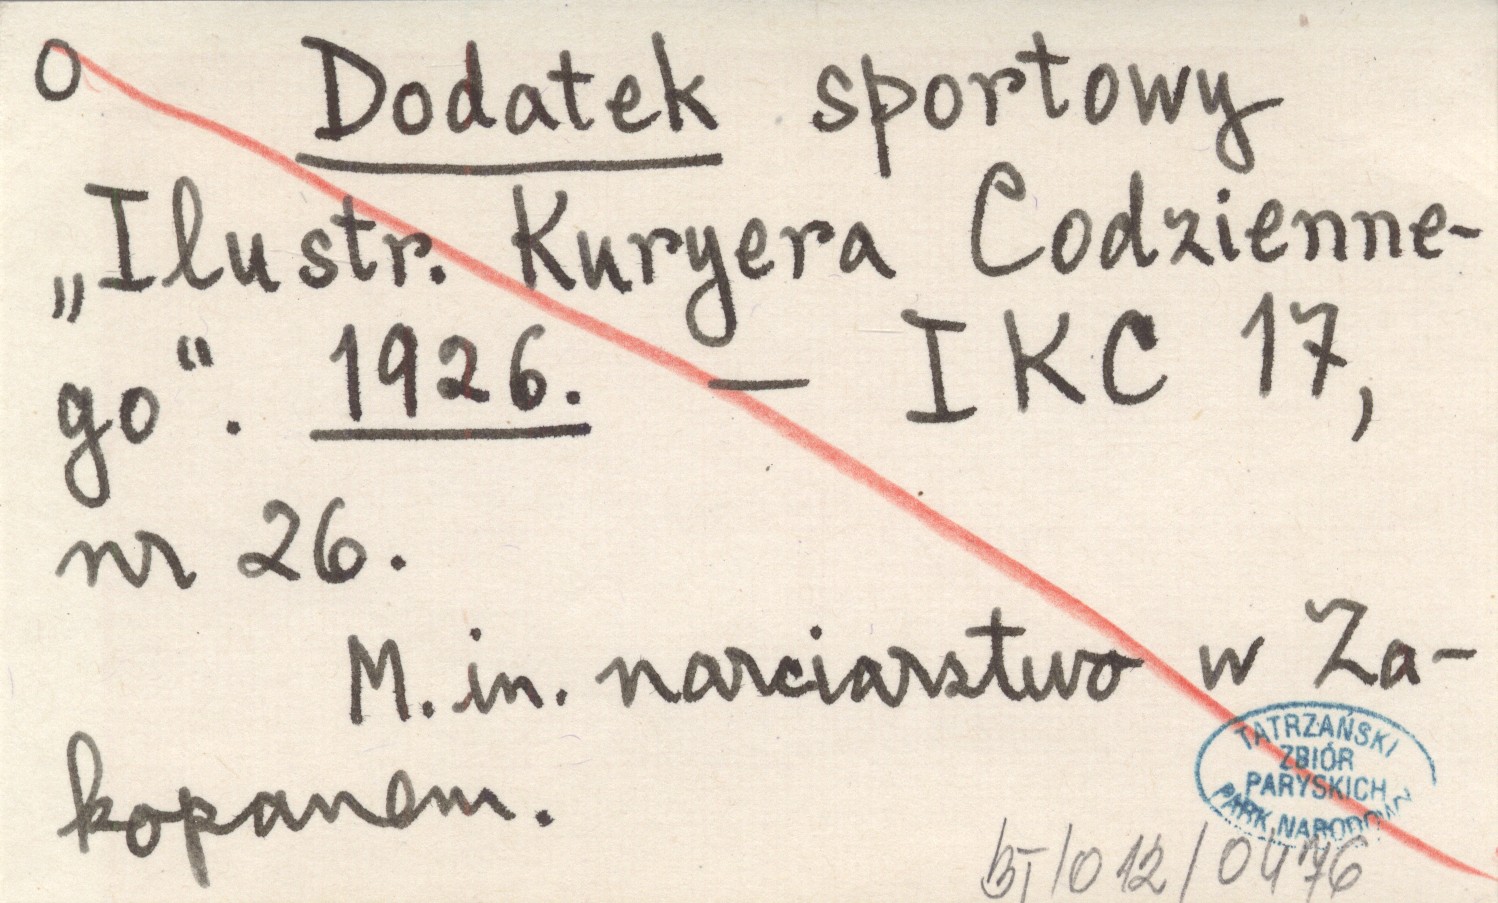 O Dodatek sportowy
„Ilustr. Kuryera Codzienne-
go“. 1926. — IKC 17,
nr 26.
M. in. narciarstwo w Za-
kopanem.
TATRZAŃSKI
ZBIÓR
PARYSKICH
PARK NARODOWY
BJ/012/0476